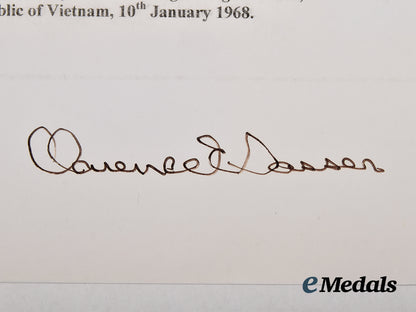 blic of Vietnam, 10th January 1968.
Clarence E Sasser
eMedals